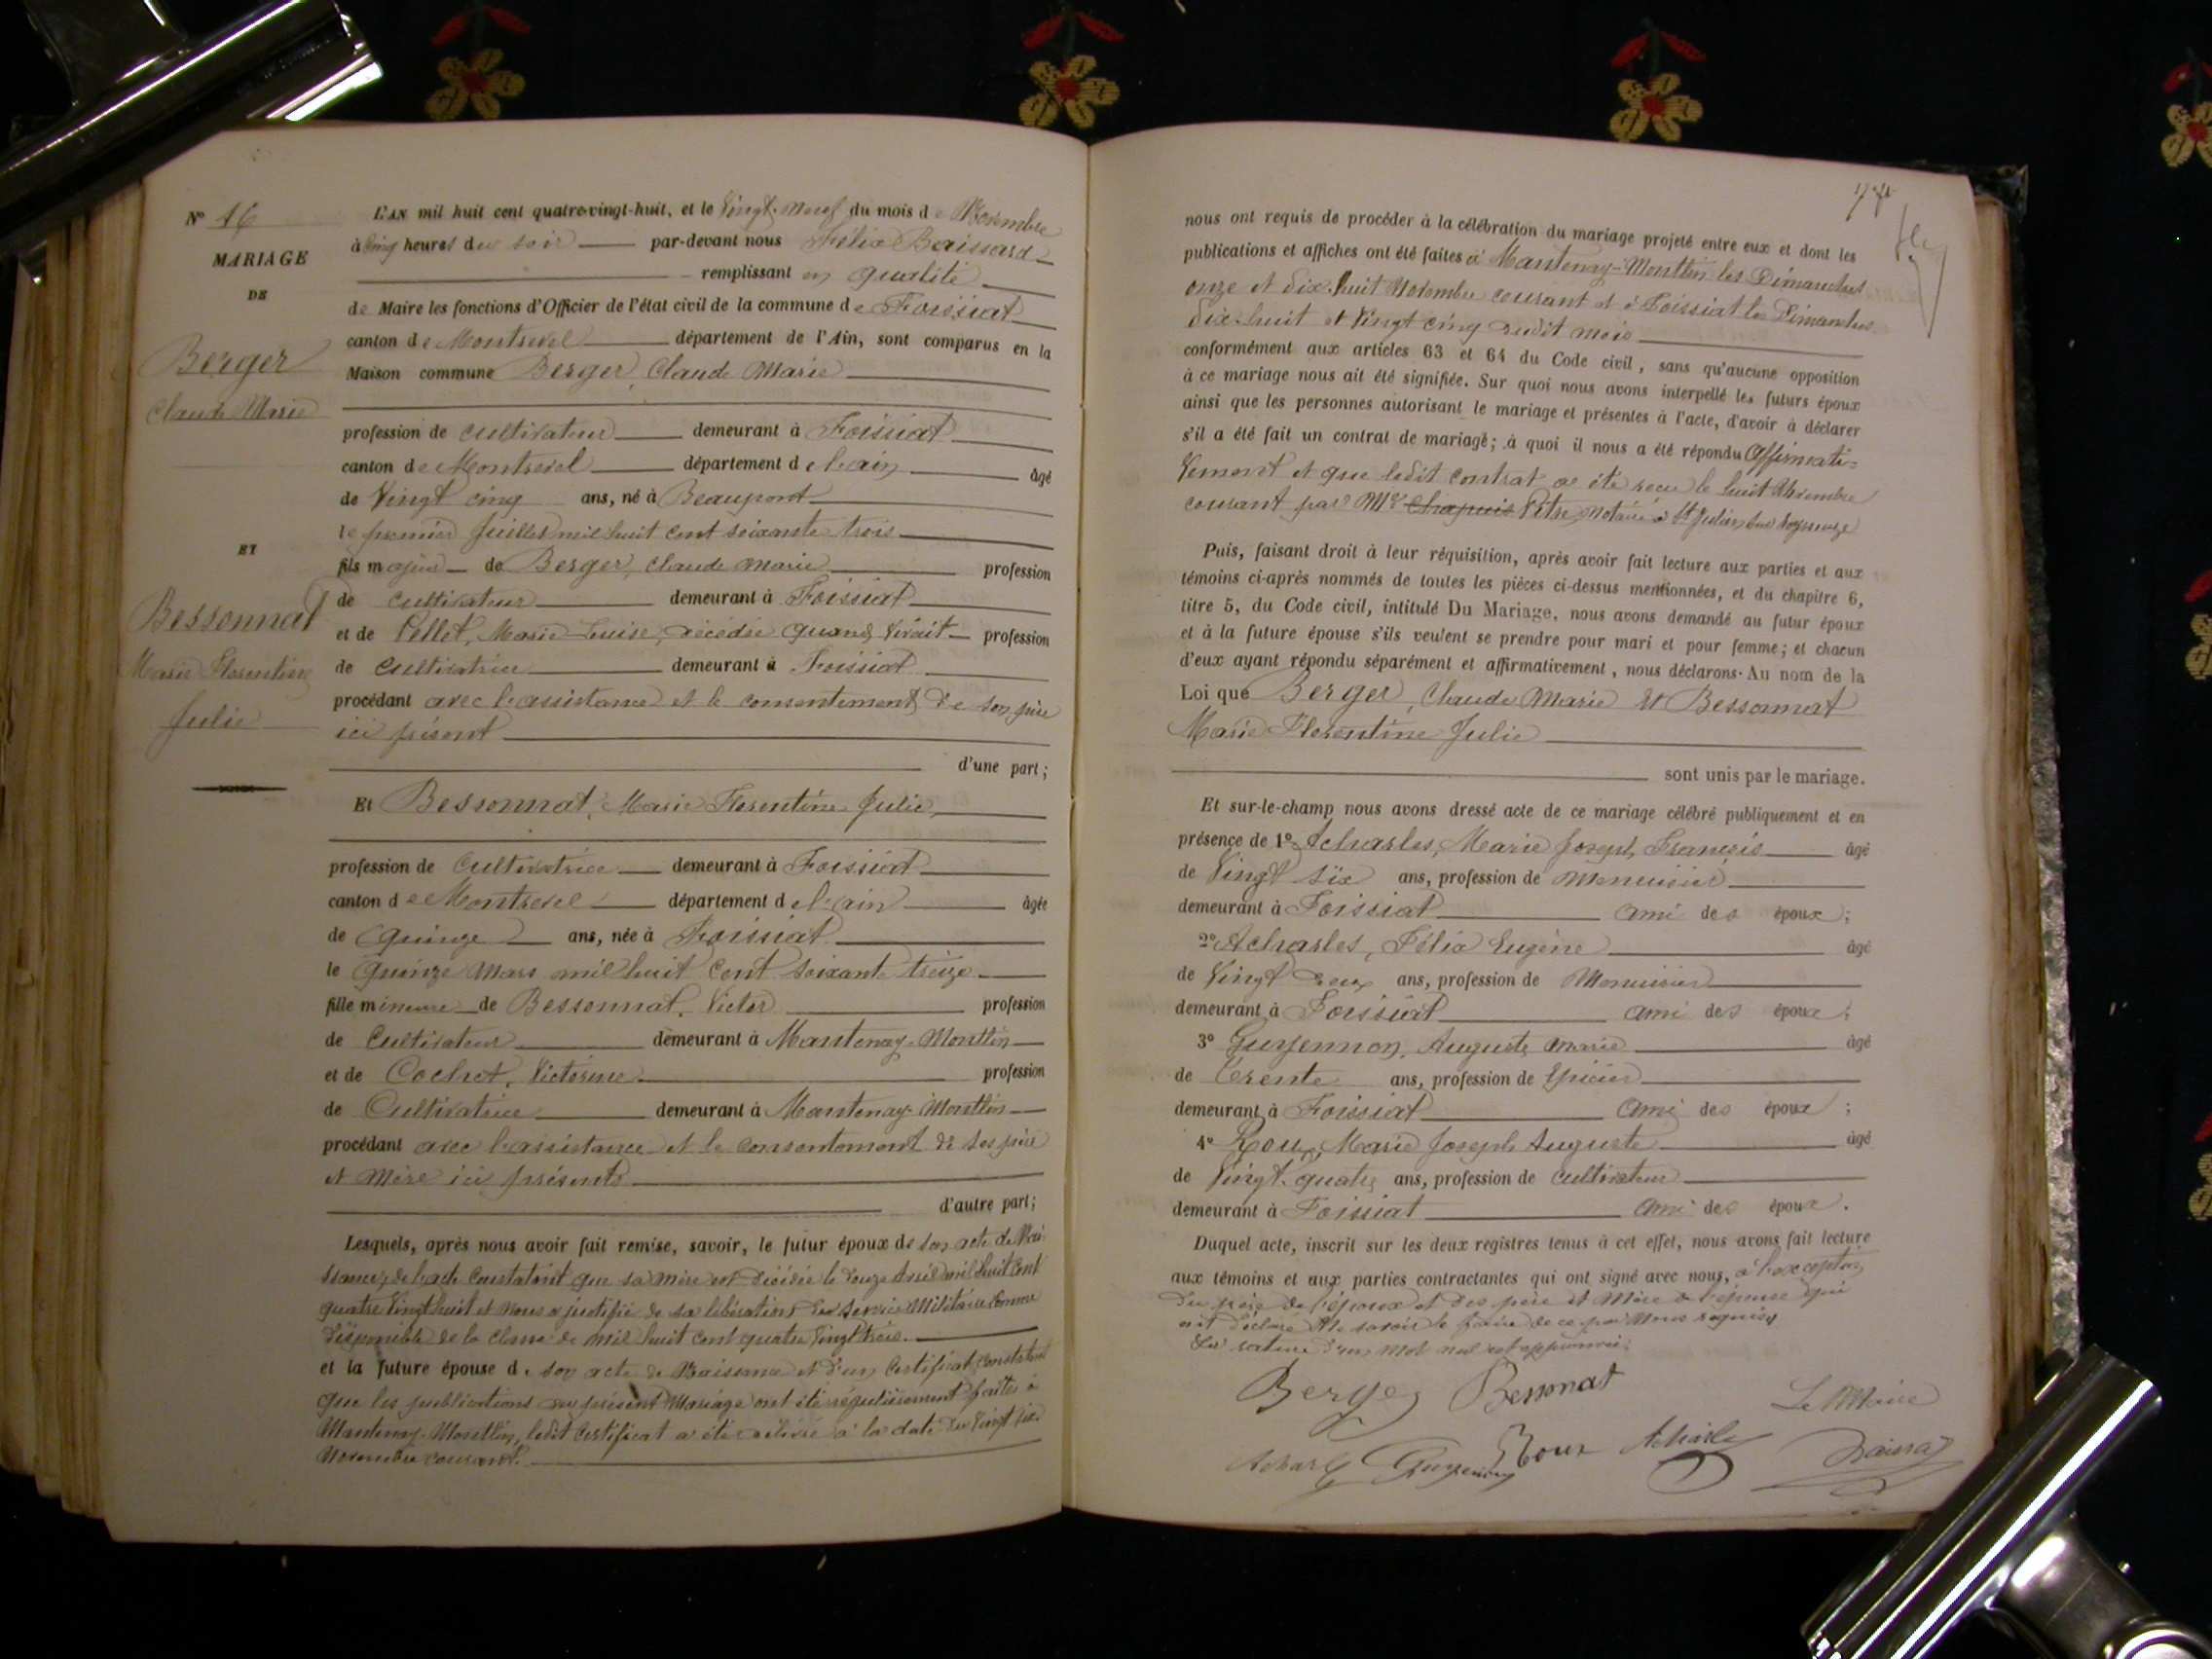 N° 16
MARIAGE
DE
Berger
Claude Marie
ET
Bessonnat
Marie Florentine
Julie
L'AN mil huit cent quatre-vingt-huit, et le Vingt-neuf du mois de Novembre
à Cinq heures du soir par-devant nous Félix
remplissant en qualité
de Maire les fonctions d'Officier de l'état civil de la commune de Foissiat
canton de Montrevel département de l'Ain, sont comparus en la
Maison commune Berger, Claude Marie
profession de cultivateur demeurant à Foissiat
canton de Montrevel département de l'ain âgé
de Vingt cinq ans, né à Beaupont
le premier Juillet mil huit cent soixante trois
fils majeur de Berger, Claude Marie profession
de cultivateur demeurant à Foissiat
et de Pellet, Marie Louise, décédée quand vivait profession
de cultivatrice demeurant à Foissiat
procédant avec l'assistance et le consentement de son père
ici présent
d'une part;
Et Bessonnat, Marie Florentine Julie,
profession de Cultivatrice demeurant à Foissiat
canton de Montrevel département de l'ain âgée
de quinze ans, née à Foissiat
le quinze Mars mil huit cent soixante treize
fille mineure de Bessonnat, Victor profession
de Cultivateur demeurant à Mantenay-Montlin
et de Cochet, Victorine profession
de Cultivatrice demeurant à Mantenay-Montlin
procédant avec l'assistance et le consentement de ses père
et Mère ici présents
d'autre part;
Lesquels, après nous avoir fait remise, savoir, le futur époux de son acte de Nais-
sance, de l'acte constatant que sa mère est décédée le douze Avril mil huit cent
quatre vingt huit et nous a justifié de sa libération du service Militaire comme
disponible de la classe de mil huit cent quatre vingt trois.
et la future épouse de son acte de Naissance et d'un Certificat constatant
que les publications du présent Mariage ont été régulièrement faites à
Mantenay-Montlin, ledit Certificat a été délivré à la date du vingt six
Novembre courant.
nous ont requis de procéder à la célébration du mariage projeté entre eux et dont les
publications et affiches ont été faites à Mantenay-Montlin les Dimanches
onze et dix-huit Novembre courant et à Foissiat les Dimanches
dix-huit et Vingt cinq dudit mois
conformément aux articles 63 et 64 du Code civil, sans qu'aucune opposition
à ce mariage nous ait été signifiée. Sur quoi nous avons interpellé les futurs époux
ainsi que les personnes autorisant le mariage et présentes à l'acte, d'avoir à déclarer
s'il a été fait un contrat de mariage; à quoi il nous a été répondu Affirmati-
vement et que ledit contrat a été reçu le huit Novembre
courant par Me Chapuis Pitre, Notaire à St Julien sur Reyssouze
Puis, faisant droit à leur réquisition, après avoir fait lecture aux parties et aux
témoins ci-après nommés de toutes les pièces ci-dessus mentionnées, et du chapitre 6,
titre 5, du Code civil, intitulé Du Mariage, nous avons demandé au futur époux
et à la future épouse s'ils veulent se prendre pour mari et pour femme; et chacun
d'eux ayant répondu séparément et affirmativement, nous déclarons. Au nom de la
Loi que Berger, Claude Marie Et Bessonnat
Marie Florentine Julie
sont unis par le mariage.
Et sur-le-champ nous avons dressé acte de ce mariage célébré publiquement et en
présence de 1° Acharles, Marie Joseph François âgé
de Vingt Six ans, profession de Menuisier
demeurant à Foissiat ami des époux;
2° Acharles, Félix Eugène âgé
de Vingt deux ans, profession de Menuisier
demeurant à Foissiat ami des époux;
3° Guyennon, Auguste Marie âgé
de Trente ans, profession de Epicier
demeurant à Foissiat ami des époux;
4° Roux, Marie Joseph Auguste âgé
de Vingt-quatre ans, profession de cultivateur
demeurant à Foissiat ami des époux.
Duquel acte, inscrit sur les deux registres tenus à cet effet, nous avons fait lecture
aux témoins et aux parties contractantes qui ont signé avec nous, à l'exception
du père de l'époux et des père et Mère de l'épouse qui
ont déclaré Ne savoir le faire de ce par Nous requis
La rature d'un mot nul est approuvée.
Berger Bessonat
Le Maire
Acharles Guyennon Roux Acharles